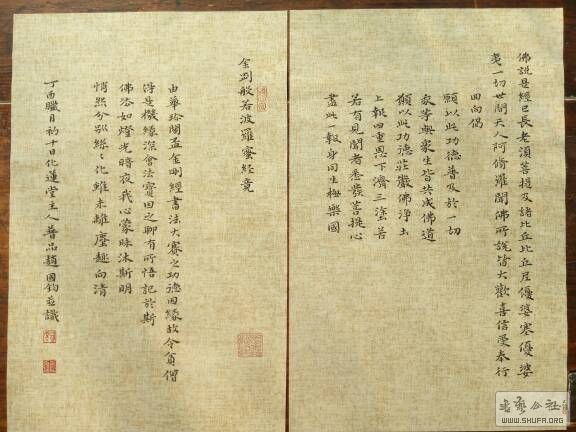 佛說是經已長老須菩提及諸比丘比丘尼優婆塞優婆
夷一切世間天人阿脩羅聞佛所說皆大歡喜信受奉行
回向偈
願以此功德普及於一切
我等與眾生皆共成佛道
願以此功德莊嚴佛淨土
上報四重恩下濟三塗苦
若有見聞者悉發菩提心
盡此一報身同生極樂國
金剛般若波羅蜜經竟
由華珍閣孟金剛經書法大賽之功德因緣故令貧僧
得是機緣深會法寶田之聊有所悟記於斯
佛添如燈光暗夜我心蒙昧沐斯明
悄然分欲絲絲化雖未離塵趣向清
丁酉臘月初十日化蓮堂主人普品趙國鈞並識
WWW.SHUFA.ORG